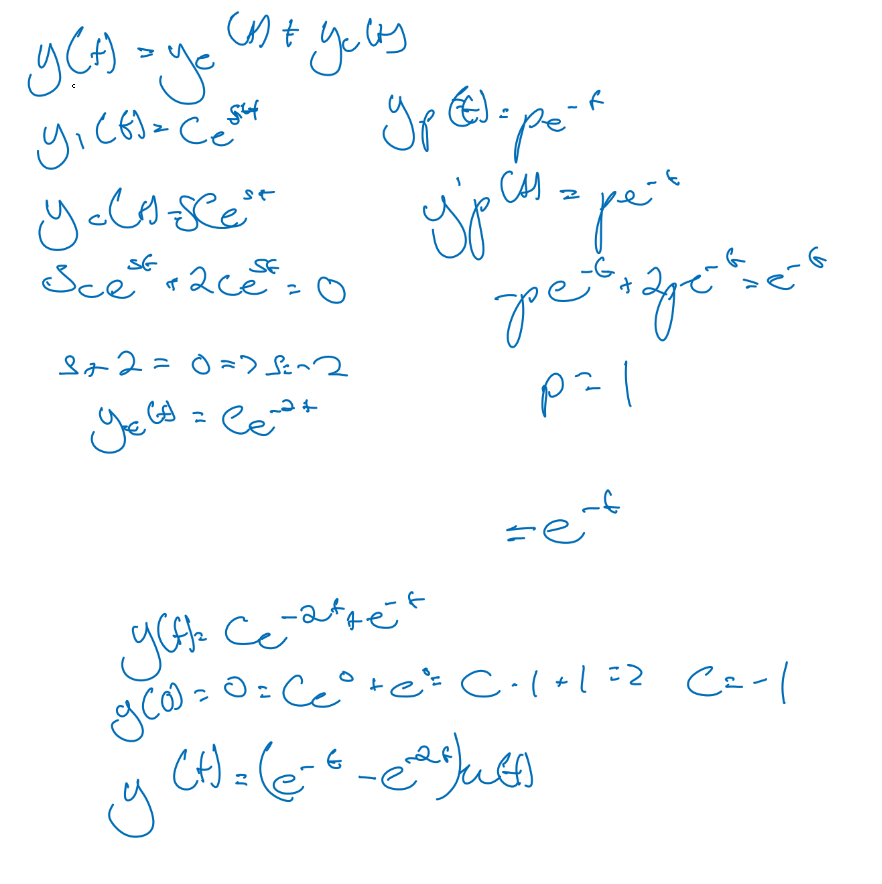 y(t) = y_c(t) + y_c(t)
y_1(t) = Ce^{st}
y_c(t) = SCe^{st}
Sce^{st} + 2ce^{st} = 0
s + 2 = 0 => s = -2
y_c(t) = Ce^{-2t}
y_p(t) = pe^{-t}
y'_p(t) = pe^{-t}
-pe^{-t} + 2pe^{-t} = e^{-t}
p = 1
= e^{-t}
y(t) = Ce^{-2t} + e^{-t}
y(0) = 0 = Ce^0 + e^0 = C · 1 + 1 = 2 C = -1
y(t) = (e^{-t} - e^{-2t})u(t)